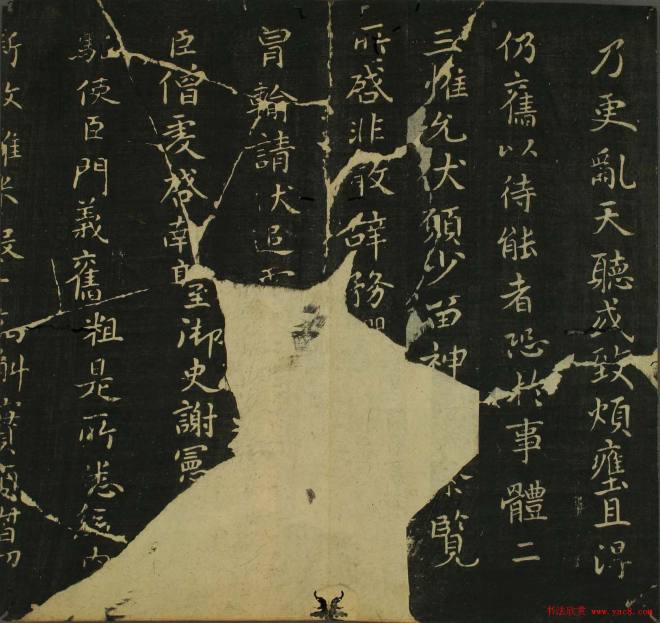 乃更亂天聽或致煩壅且得
仍舊以待能者恐於事體二
三惟允伏願少留神覽
所啓非敢辭務
冒輸請伏追
臣僧虔啓南臺御史謝憲
驅使臣門義舊粗是所悉經內
米斛
书法欣赏 www.yac8.com